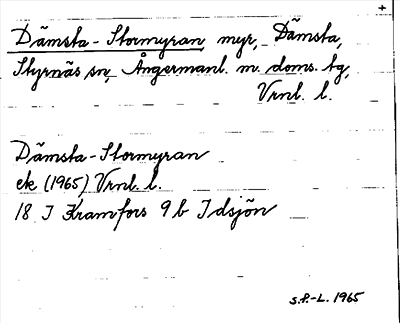 +
Dämsta-Stormyran, myr, Dämsta,
Styrnäs sn, Ångermanl. m. doms. tg,
Vrnl. l.
Dämsta-Stormyran
ek (1965) Vrnl. l.
18 J Kramfors 9 b Idsjön
S.P.-L. 1965